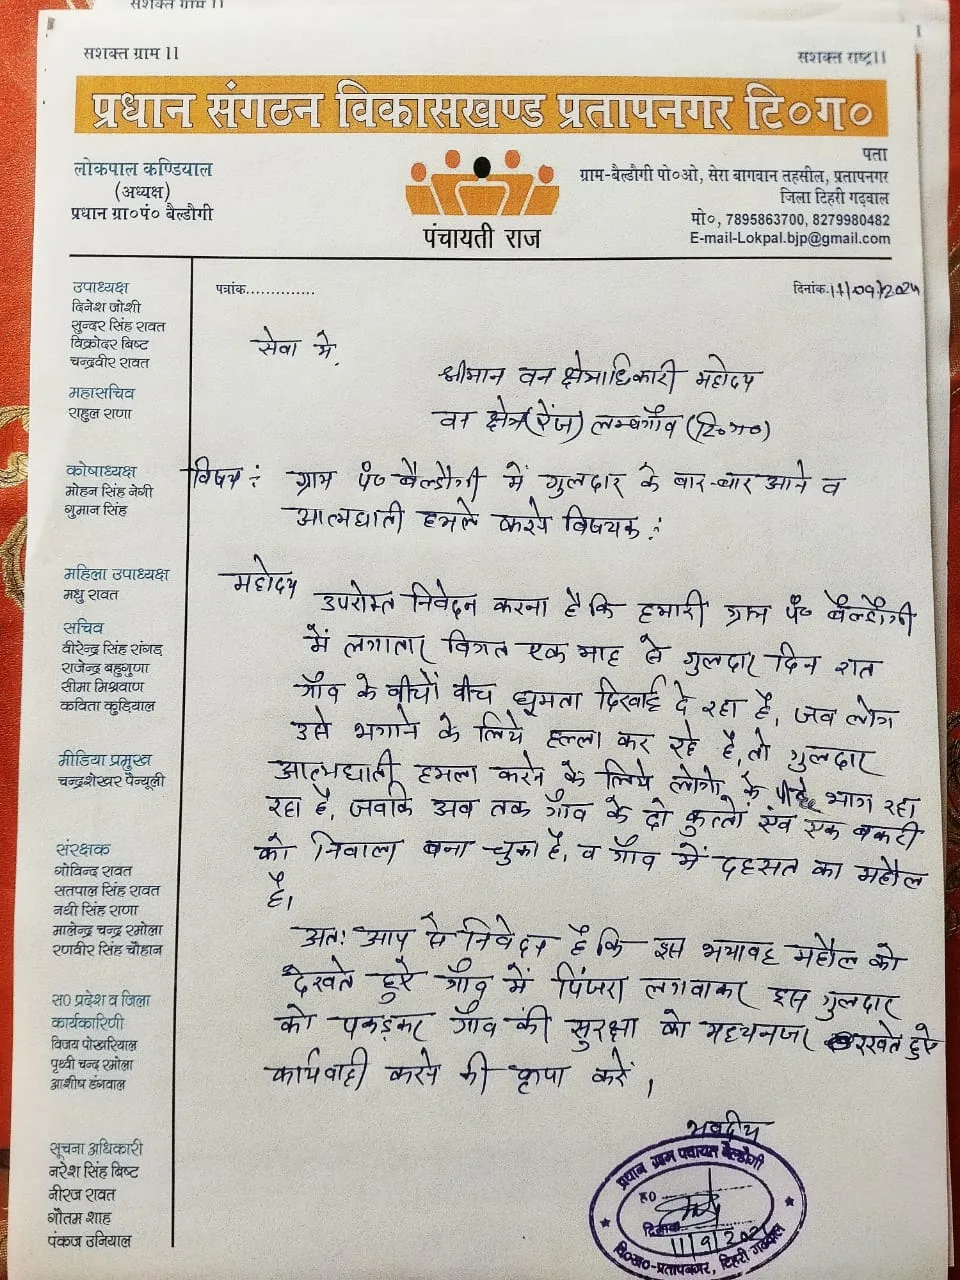 सशक्त ग्राम ll
सशक्त ग्राम ll
सशक्त राष्ट्र।।
प्रधान संगठन विकासखण्ड प्रतापनगर टि०ग०
लोकपाल कण्डियाल
(अध्यक्ष)
प्रधान ग्रा०पं० बैल्डौगी
पंचायती राज
पता
ग्राम-बैल्डौगी पो०ओ, सेरा बागवान तहसील, प्रतापनगर
जिला टिहरी गढ़वाल
मो०, 7895863700, 8279980482
E-mail-Lokpal.bjp@gmail.com
उपाध्यक्ष
दिनेश जोशी
सुन्दर सिंह रावत
विक्रोदर बिष्ट
चन्द्रवीर रावत
महासचिव
राहुल राणा
कोषाध्यक्ष
मोहन सिंह नेगी
गुमान सिंह
महिला उपाध्यक्ष
मधु रावत
सचिव
वीरेन्द्र सिंह रांगड़
राजेन्द्र बहुगुणा
सीमा मिश्रवाण
कविता कुड़ियाल
मीडिया प्रमुख
चन्द्रशेखर पैन्यूली
संरक्षक
गोविन्द रावत
सतपाल सिंह रावत
नथी सिंह राणा
मालेन्द्र चन्द्र रमोला
रणवीर सिंह चौहान
स0 प्रदेश व जिला
कार्यकारिणी
विजय पोखरियाल
पृथ्वी चन्द रमोला
आशीष डंगवाल
सूचना अधिकारी
नरेश सिंह बिष्ट
नीरज रावत
गौतम शाह
पंकज उनियाल
पत्रांक..............
दिनांक.11/09/2024
सेवा में,
श्रीमान वन क्षेत्राधिकारी महोदय
वन क्षेत्र(रेंज) लम्बगाँव (टि०ग०)
विषय: ग्राम पं० बैल्डौगी में गुलदार के बार-बार आने व
आत्मघाती हमले करने विषयक:
महोदय
उपरोक्त निवेदन करना है कि हमारी ग्राम पं० बैल्डौगी
में लगातार विगत एक माह से गुलदार दिन रात
गाँव के बीचों बीच घूमता दिखाई दे रहा है, जब लोग
उसे भगाने के लिये हल्ला कर रहे है, तो गुलदार
आत्मघाती हमला करने के लिये लोगो के पीछे भाग रहा
रहा है, जबकि अब तक गाँव के दो कुत्तों एंव एक बकरी
को निवाला बना चुका है, व गाँव में दहसत का महौल
है।
अतः आप से निवेदन है कि इस भयावह महौल को
देखते हुऐ गाँव में पिंजरा लगवाकर इस गुलदार
को पकड़कर गाँव की सुरक्षा को मध्यनजर रखते हुऐ
कार्यवाही करने की कृपा करें।
भवदीय
प्रधान ग्राम पंचायत बैल्डौगी
ह0
दिनांक
11/9/2024
वि०ख०-प्रतापनगर, टिहरी गढ़वाल